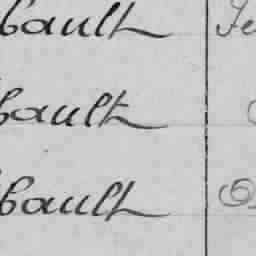 bault Je
bault
bault